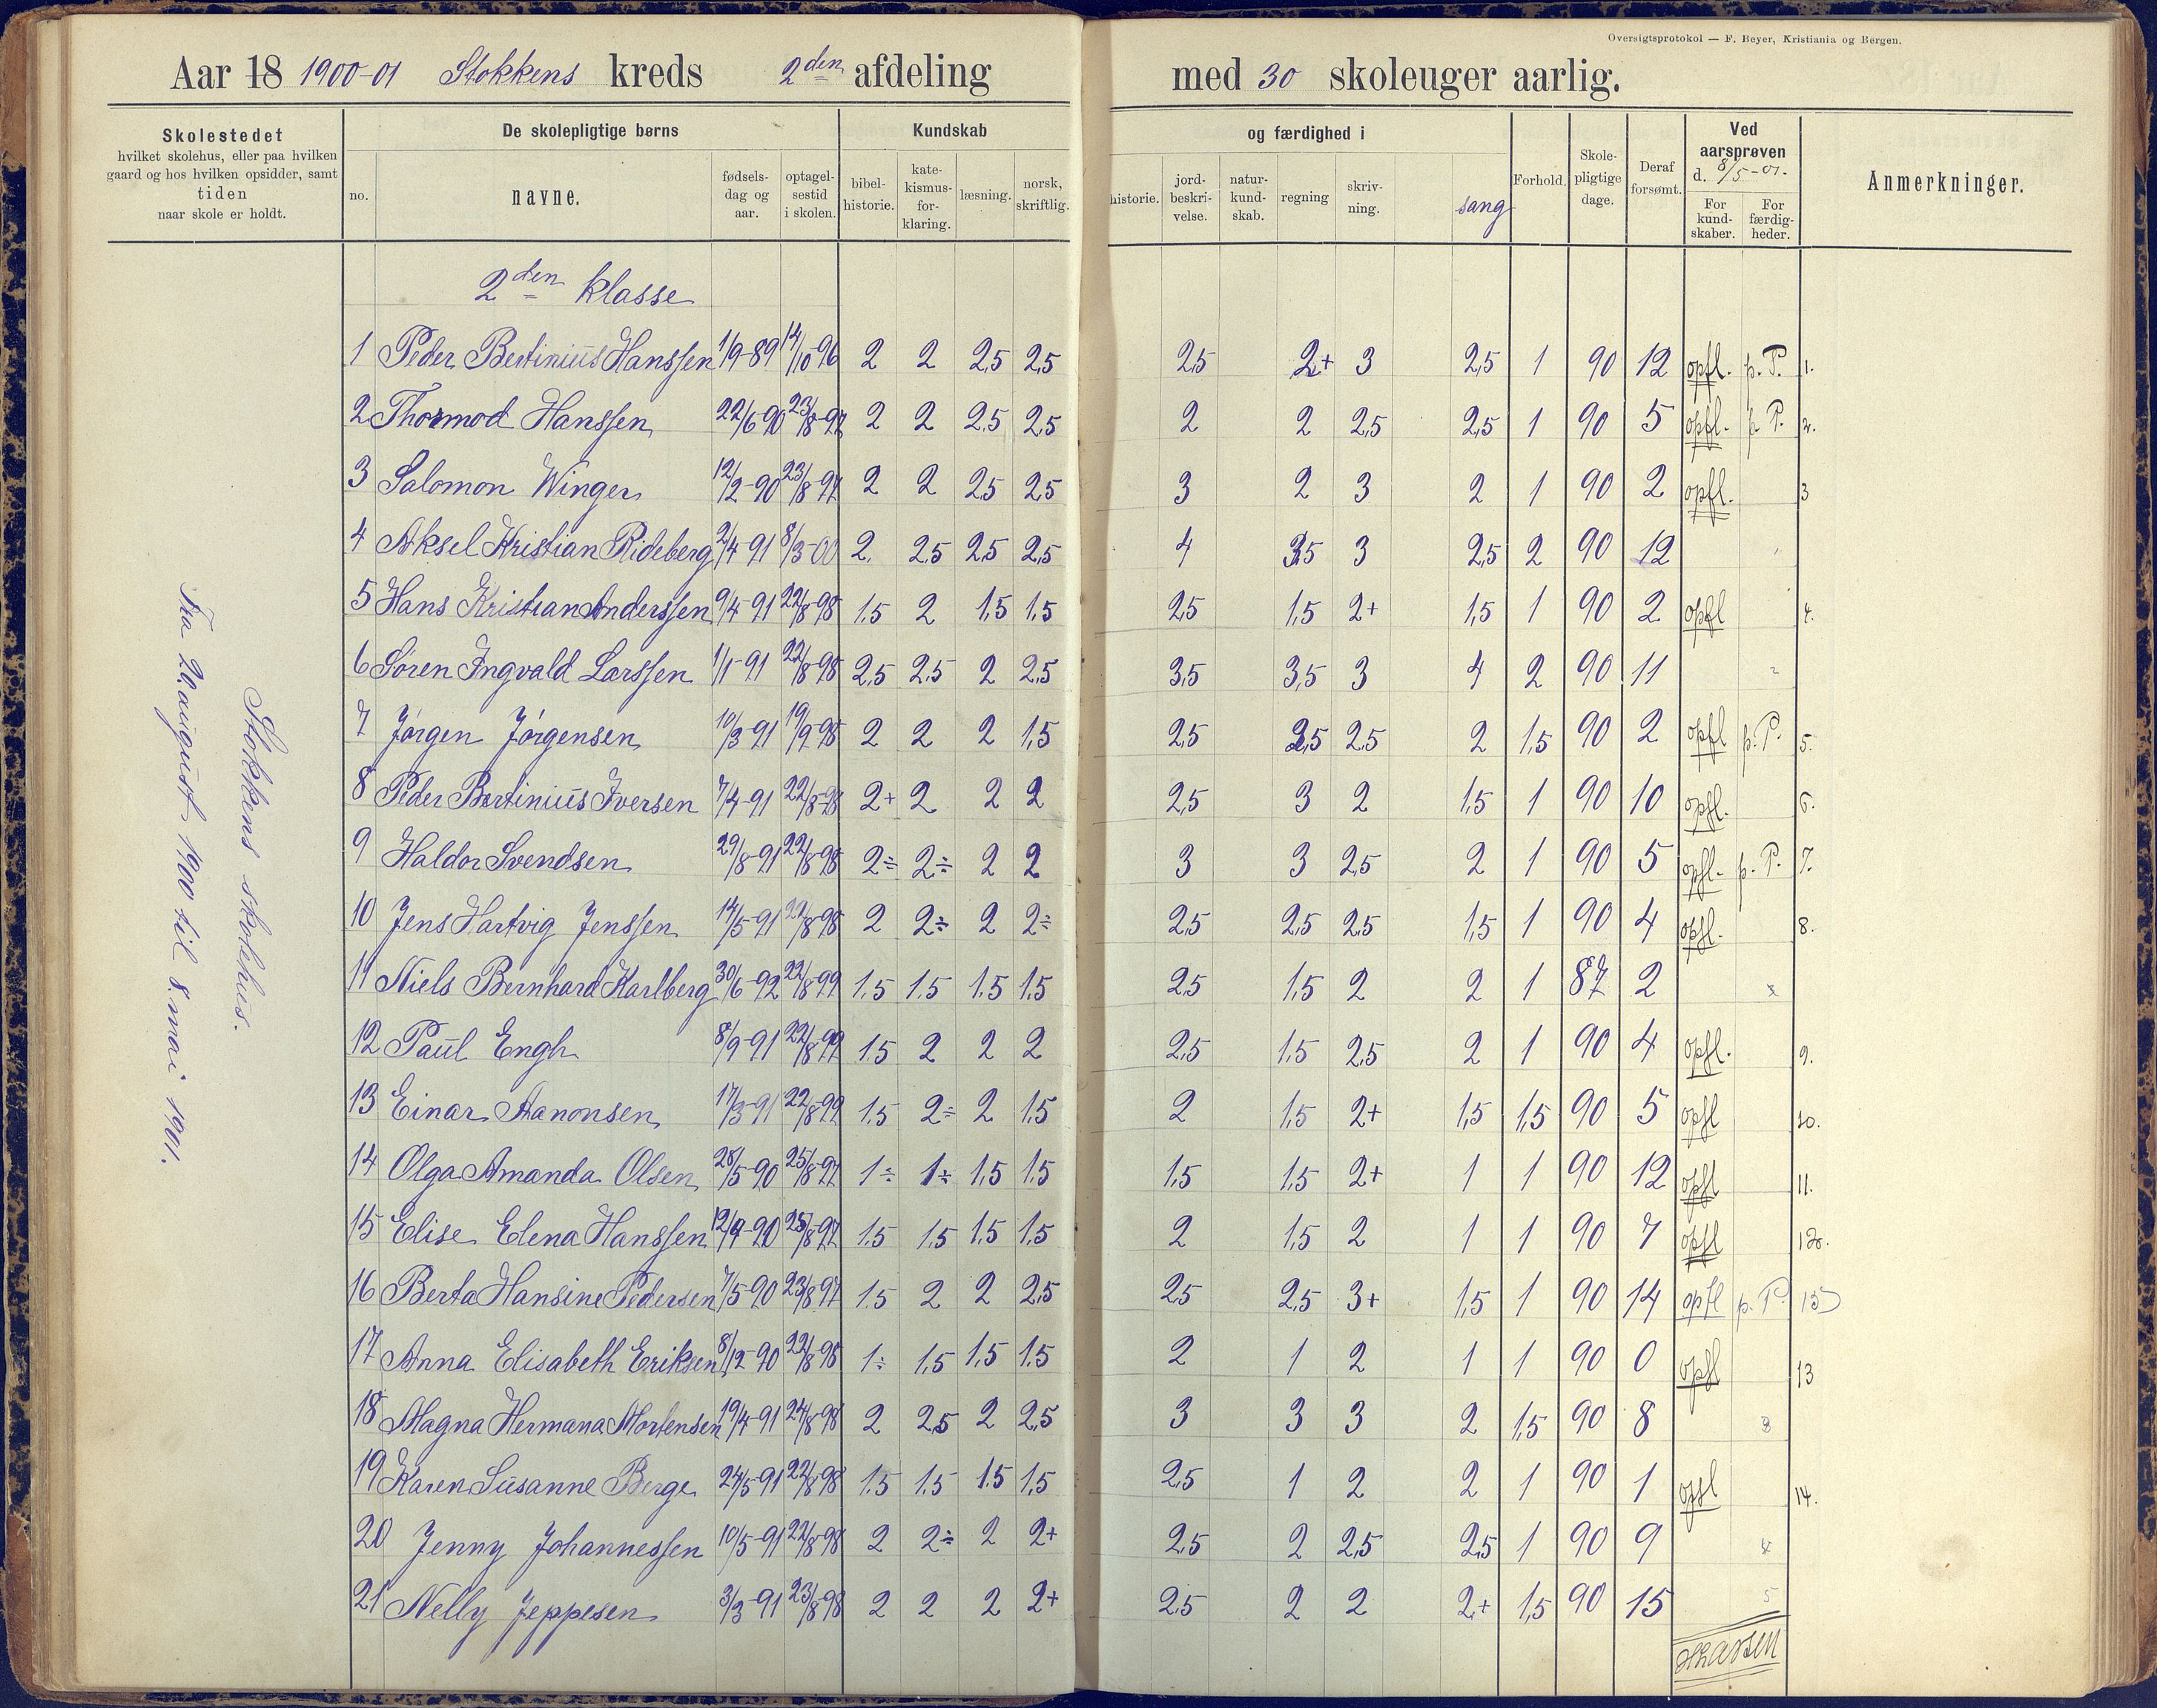 Oversigtsprotokol — F. Beyer, Kristiania og Bergen.
Aar 18 1900-01 Stokkens kreds 2den afdeling med 30 skoleuger aarlig.
Skolestedet hvilket skolehus, eller paa hvilken gaard og hos hvilken opsidder, samt tiden naar skole er holdt.
De skolepligtige børns
no. navne. fødsels-dag og aar. optagel-sestid i skolen.
Kundskab og færdighed i
bibel-historie. kate-kismus-for-klaring. læsning. norsk, skriftlig. historie. jord-beskri-velse. natur-kund-skab. regning skriv-ning. sang
Forhold. Skole-pligtige dage. Deraf forsømt.
Ved aarsprøven d. 8/5-01.
For kund-skaber. For færdig-heder.
Anmerkninger.
Stokkens skolehus.
Fra 20 august 1900 til 8. mai 1901.
2den klasse
1 Peder Bertinius Hanssen 1/9-89 14/10-96 2 2 2,5 2,5 2,5 2+ 3 2,5 1 90 12 opfl. p. P. 1.
2 Thormod Hanssen 22/6-90 23/8-97 2 2 2,5 2,5 2 2 2,5 2,5 1 90 5 opfl. p P. 2.
3 Salomon Winger 12/2-90 23/8-97 2 2 2,5 2,5 3 2 3 2 1 90 2 opfl. 3
4 Aksel Kristian Rideberg 2/4-91 8/3-00 2. 2,5 2,5 2,5 4 3,5 3 2,5 2 90 12
5 Hans Kristian Anderssen 9/4-91 22/8-98 1.5 2 1,5 1,5 2,5 1,5 2+ 1,5 1 90 2 opfl 4.
6 Søren Ingvald Larssen 1/1-91 22/8-98 2,5 2,5 2 2,5 3,5 3,5 3 4 2 90 11
7 Jørgen Jørgensen 10/3-91 19/9-98 2 2 2 1,5 2,5 2,5 2,5 2 1,5 90 2 opfl p. P. 5.
8 Peder Bertinius Iversen 7/4-91 22/8-98 2+ 2 2 2 2,5 3 2 1,5 1 90 10 opfl. 6.
9 Haldor Svendsen 29/8-91 22/8-98 2÷ 2÷ 2 2 3 3 2,5 2 1 90 5 opfl. p. P. 7.
10 Jens Hartvig Jenssen 14/5-91 22/8-98 2 2÷ 2 2÷ 2,5 2,5 2,5 1,5 1 90 4 opfl. 8.
11 Niels Bernhard Karlberg 30/6-92 22/8-99 1.5 1.5 1.5 1.5 2,5 1,5 2 2 1 87 2
12 Paul Engh 8/9-91 22/8-99 1.5 2 2 2 2,5 1,5 2,5 2 1 90 4 opfl. 9.
13 Einar Aanonsen 17/3-91 22/8-99 1.5 2÷ 2 1.5 2 1,5 2+ 1,5 1,5 90 5 opfl 10.
14 Olga Amanda Olsen 28/5-90 25/8-97 1÷ 1÷ 1,5 1.5 1,5 1,5 2+ 1 1 90 12 opfl 11.
15 Elise Elena Hanssen 12/9-90 25/8-97 1.5 1.5 1.5 1.5 2 1,5 2 1 1 90 7 opfl 12.
16 Berta Hansine Pedersen 7/5-90 23/8-97 1.5 2 2 2,5 2,5 2,5 3+ 1,5 1 90 14 opfl p. P. 15
17 Anna Elisabeth Eriksen 8/12-90 22/8-98 1÷ 1,5 1,5 1.5 2 1 2 1 1 90 0 opfl 13
18 Magna Hermana Mortensen 19/4-91 24/8-98 2 2,5 2 2,5 3 3 3 2 1,5 90 8 3
19 Karen Susanne Berge 24/5-91 22/8-98 1.5 1.5 1.5 1,5 2,5 1 2 2 1 90 1 opfl 14.
20 Jenny Johannessen 10/5-91 22/8-98 2 2÷ 2 2+ 2,5 2 2,5 2,5 1 90 9 4
21 Nelly Jeppesen 3/3-91 23/8-98 2 2 2 2+ 2,5 2 2 2+ 1,5 90 15 5